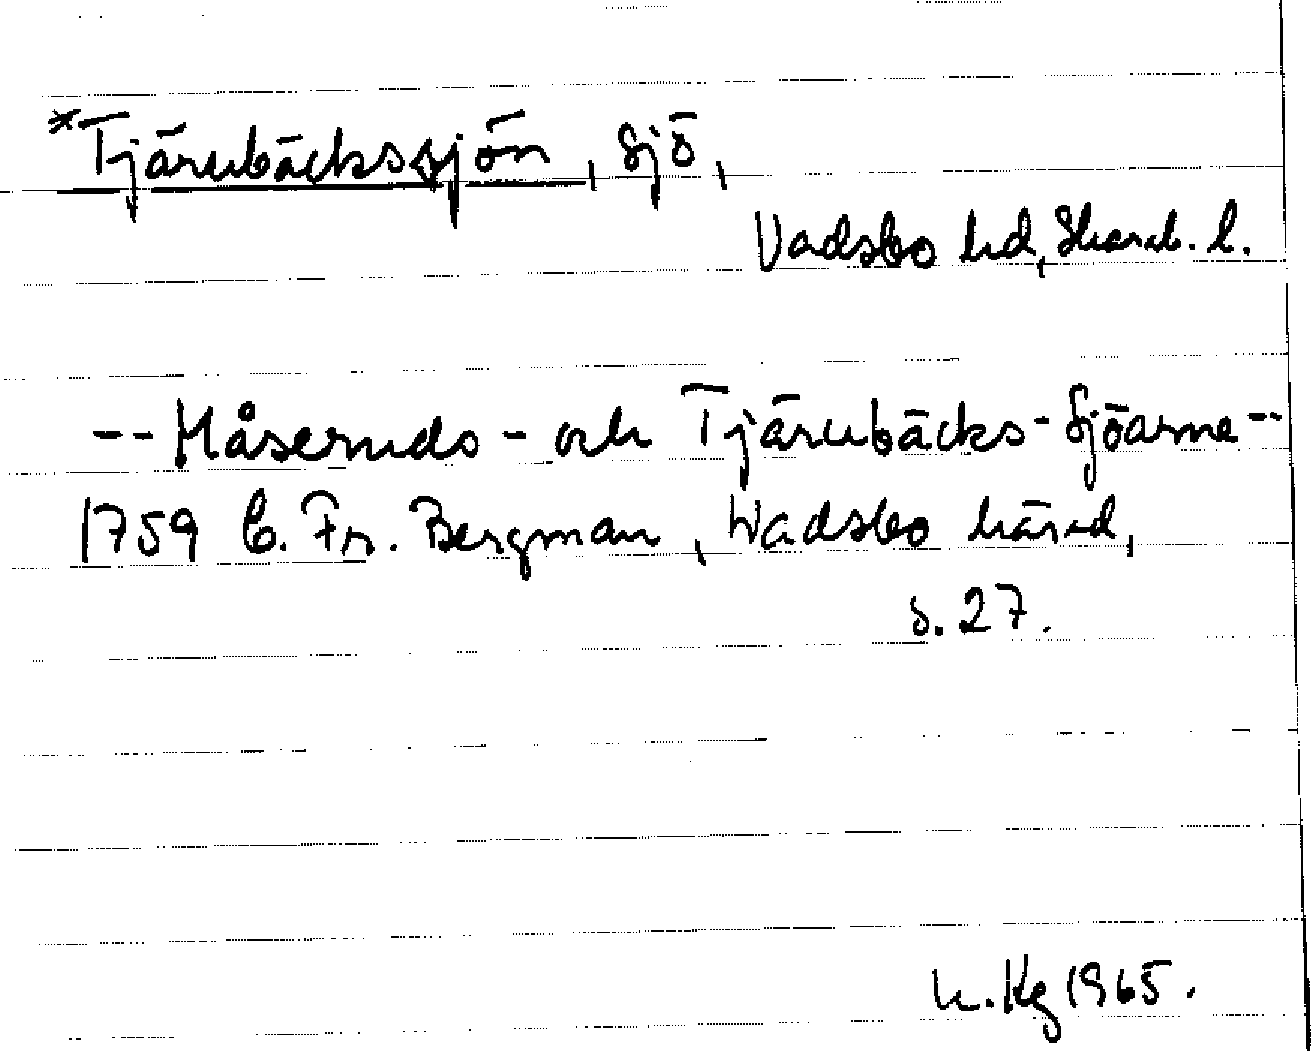 *Tjärubäckssjön, sjö,
Vadsbo hd, Skarab. l.
-- Håseruds- och Tjärubäcks-Sjöarne --
1759 C. Fr. Bergman, Wadsbo härad,
s. 27.
K. Kg 1965.